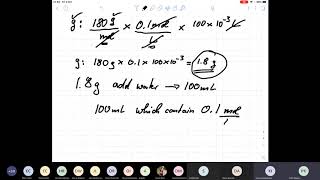 g: 180 g/mol × 0.1 mol/L × 100×10⁻³ L
g: 180 g × 0.1 × 100×10⁻³ = 1.8 g
1.8 g add water → 100 mL
100 mL which contain 0.1 mol/L